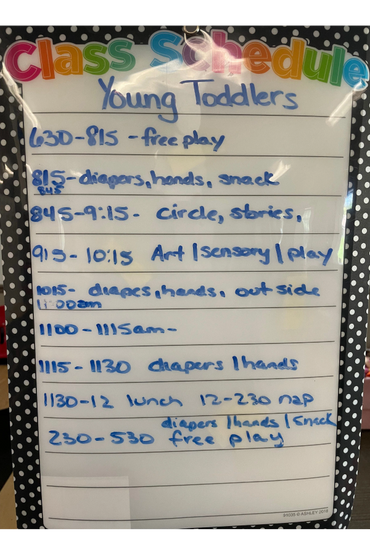 Class Schedule
Young Toddlers
630-815 - free play
815- diapers, hands, snack
845
845-9:15- circle, stories,
915- 10:15 Art / sensory / play
1015- diapes, hands, outside
11:00am
1100-1115am-
1115-1130 diapers / hands
1130-12 lunch 12-230 nap
diapers / hands / snack
230-530 free play